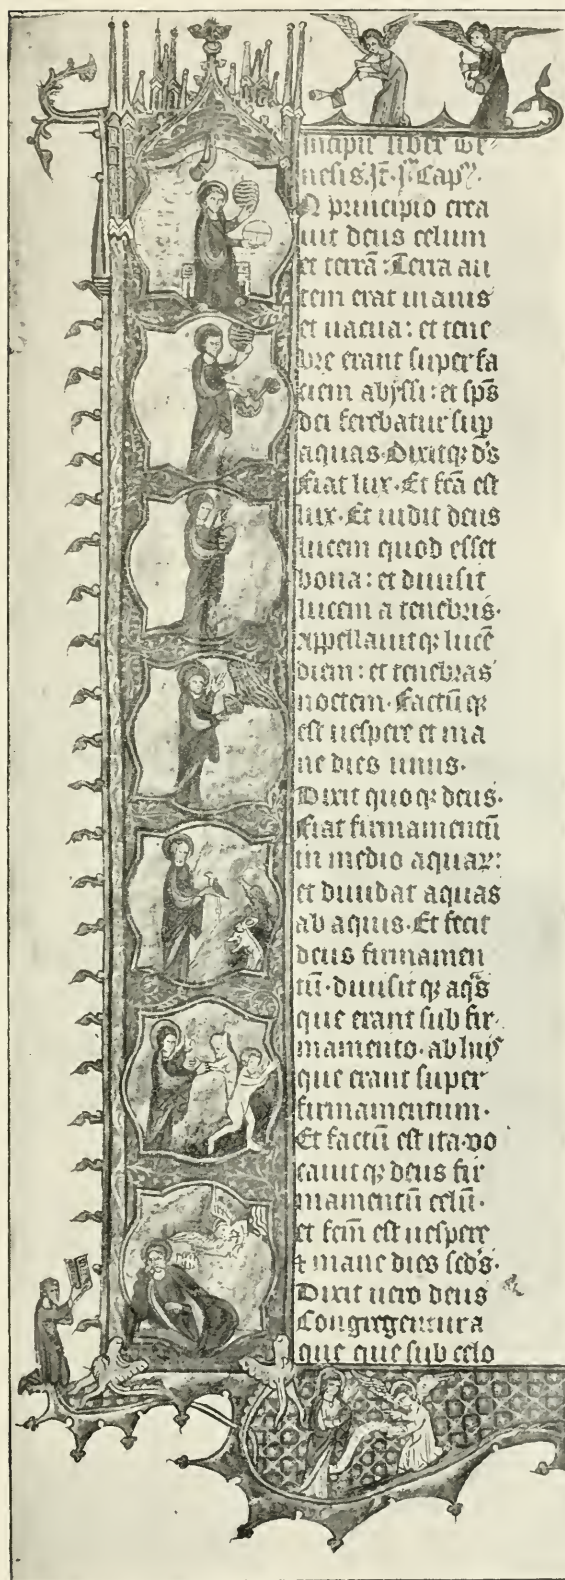 incipit liber Ge-
nesis. Jt. j⁹ Cap⁹.
N principio crea
uit deus celum
et terrā: Terra au
tem erat inanis
et uacua: et tene
bre erant super fa
ciem abyssi: et sp̄s
dei ferebatur sup̄
aquas. Dixitqꝫ d̄s
fiat lux. Et fc̄a est
lux. Et uidit deus
lucem quod esset
bona: et diuisit
lucem a tenebris.
Appellauitqꝫ lucē
diem: et tenebras
noctem. Factūqꝫ
est uespere et ma
ne dies unus.
Dixit quoqꝫ deus.
fiat firmamentū
in medio aquaꝝ:
et diuidat aquas
ab aquis. Et fecit
deus firmamen
tū. diuisitqꝫ aqᵃs
que erant sub fir
mamento. ab hijs
que erant super
firmamentum.
Et factū est ita. uo
cauitqꝫ deus fir
mamentū celū.
et fc̄m est uespere
⁊ mane dies sc̄d's.
Dixit uero deus
Congregentur a
que que sub celo